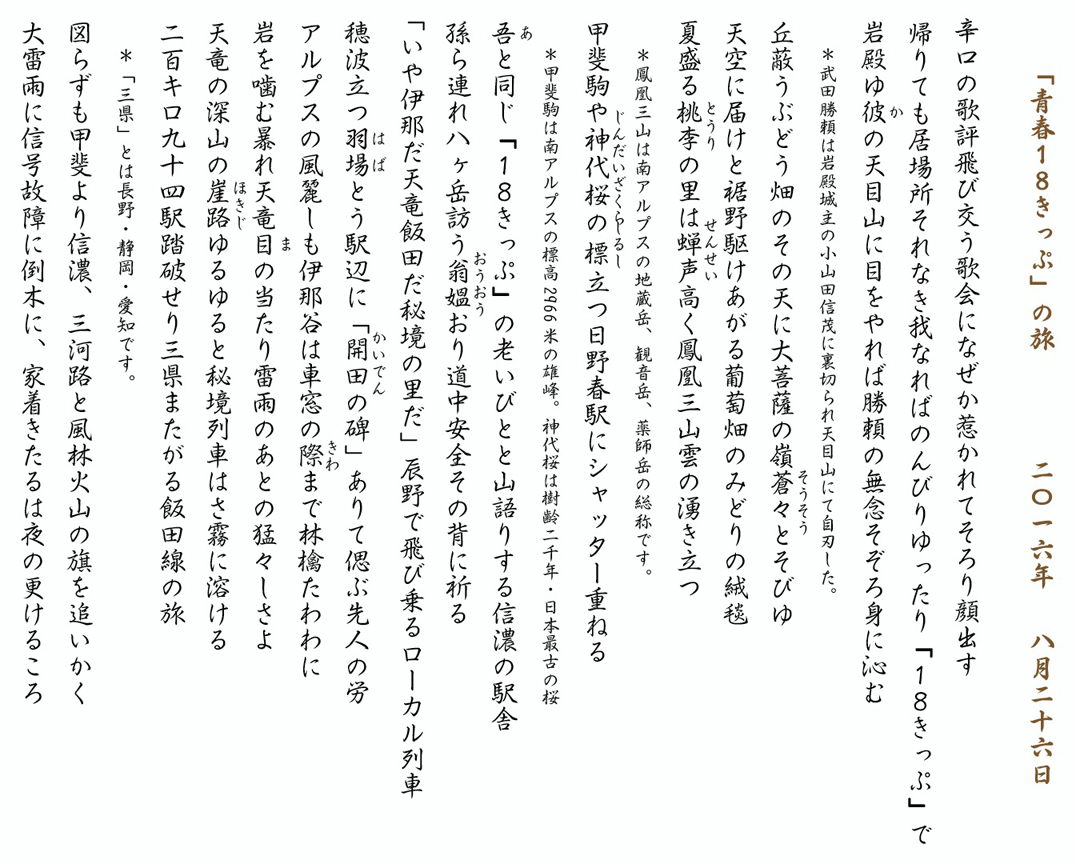 「青春18きっぷ」の旅　二〇一六年　八月二十六日
辛口の歌評飛び交う歌会になぜか惹かれてそろり顔出す
帰りても居場所それなき我なればのんびりゆったり「18きっぷ」で
岩殿ゆ彼の天目山に目をやれば勝頼の無念そぞろ身に沁む
か
＊武田勝頼は岩殿城主の小山田信茂に裏切られ天目山にて自刃した。
丘蔽うぶどう畑のその天に大菩薩の嶺蒼々とそびゆ
そうそう
天空に届けと裾野駆けあがる葡萄畑のみどりの絨毯
夏盛る桃李の里は蝉声高く鳳凰三山雲の湧き立つ
とうり
せんせい
＊鳳凰三山は南アルプスの地蔵岳、観音岳、薬師岳の総称です。
甲斐駒や神代桜の標立つ日野春駅にシャッター重ねる
じんだいざくら
しるし
＊甲斐駒は南アルプスの標高2966米の雄峰。神代桜は樹齢二千年・日本最古の桜
吾と同じ「18きっぷ」の老いびとと山語りする信濃の駅舎
あ
孫ら連れハヶ岳訪う翁媼おり道中安全その背に祈る
おうおう
「いや伊那だ天竜飯田だ秘境の里だ」辰野で飛び乗るローカル列車
穂波立つ羽場とう駅辺に「開田の碑」ありて偲ぶ先人の労
はば
かいでん
アルプスの風麗しも伊那谷は車窓の際まで林檎たわわに
きわ
岩を噛む暴れ天竜目の当たり雷雨のあとの猛々しさよ
ま
天竜の深山の崖路ゆるゆると秘境列車はさ霧に溶ける
ほきじ
二百キロ九十四駅踏破せり三県またがる飯田線の旅
＊「三県」とは長野・静岡・愛知です。
図らずも甲斐より信濃、三河路と風林火山の旗を追いかく
大雷雨に信号故障に倒木に、家着きたるは夜の更けるころ